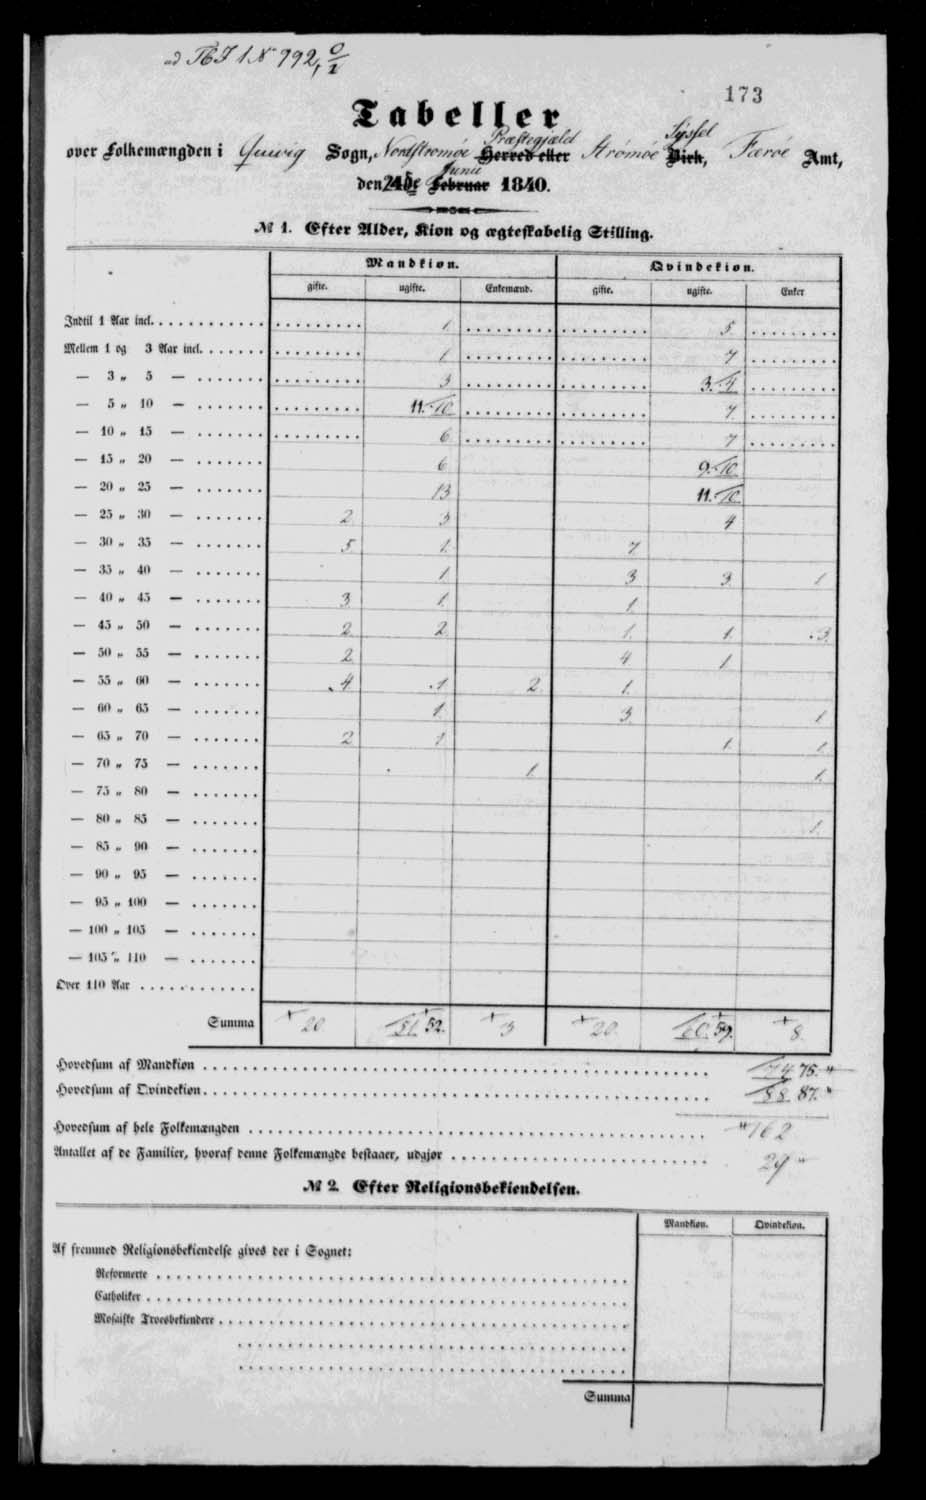 ad Tb J 1 № 792, O/1
173
Tabeller
over Folkemængden i Qvivig Sogn, Nordstromöe Præstegjæld Herred eller Strömöe Syssel Birk, Færöe Amt,
den Junii Februar 1840.
№ 1. Efter Alder, Kion og ægteskabelig Stilling.
Mandkion. Qvindekion.
gifte. ugifte. Enkemænd. gifte. ugifte. Enker
Indtil 1 Aar incl. 1. 5.
Mellem 1 og 3 Aar incl. 1 7
— 3 „ 5 — 3 3. 4
— 5 „ 10 — 11. 10 7.
— 10 „ 15 — 6 7
— 15 „ 20 — 6 9. 10
— 20 „ 25 — 13 11. 10
— 25 „ 30 — 2 3 4
— 30 „ 35 — 5 1. 7.
— 35 „ 40 — 1. 3 3. 1
— 40 „ 45 — 3. 1. 1.
— 45 „ 50 — 2. 2 1. 1. 3.
— 50 „ 55 — 2 4 1.
— 55 „ 60 — 4 1 2. 1.
— 60 „ 65 — 1. 3. 1
— 65 „ 70 — 2 1 1. 1.
— 70 „ 75 — 1. 1.
— 75 „ 80 —
— 80 „ 85 — 1.
— 85 „ 90 —
— 90 „ 95 —
— 95 „ 100 —
— 100 „ 105 —
— 105 „ 110 —
Over 110 Aar
Summa 20. 51. 52. 3 20. 60. 59. 8.
Hovedsum af Mandkion 74 75. "
Hovedsum af Qvindekion 88 87. "
Hovedsum af hele Folkemængden " 162
Antallet af de Familier, hvoraf denne Folkemængde bestaaer, udgjør 29 "
№ 2. Efter Religionsbekiendelsen.
Mandkion. Qvindekion.
Af fremmed Religionsbekiendelse gives der i Sognet:
Reformerte
Catholiker
Mosaiske Troesbekiendere
Summa